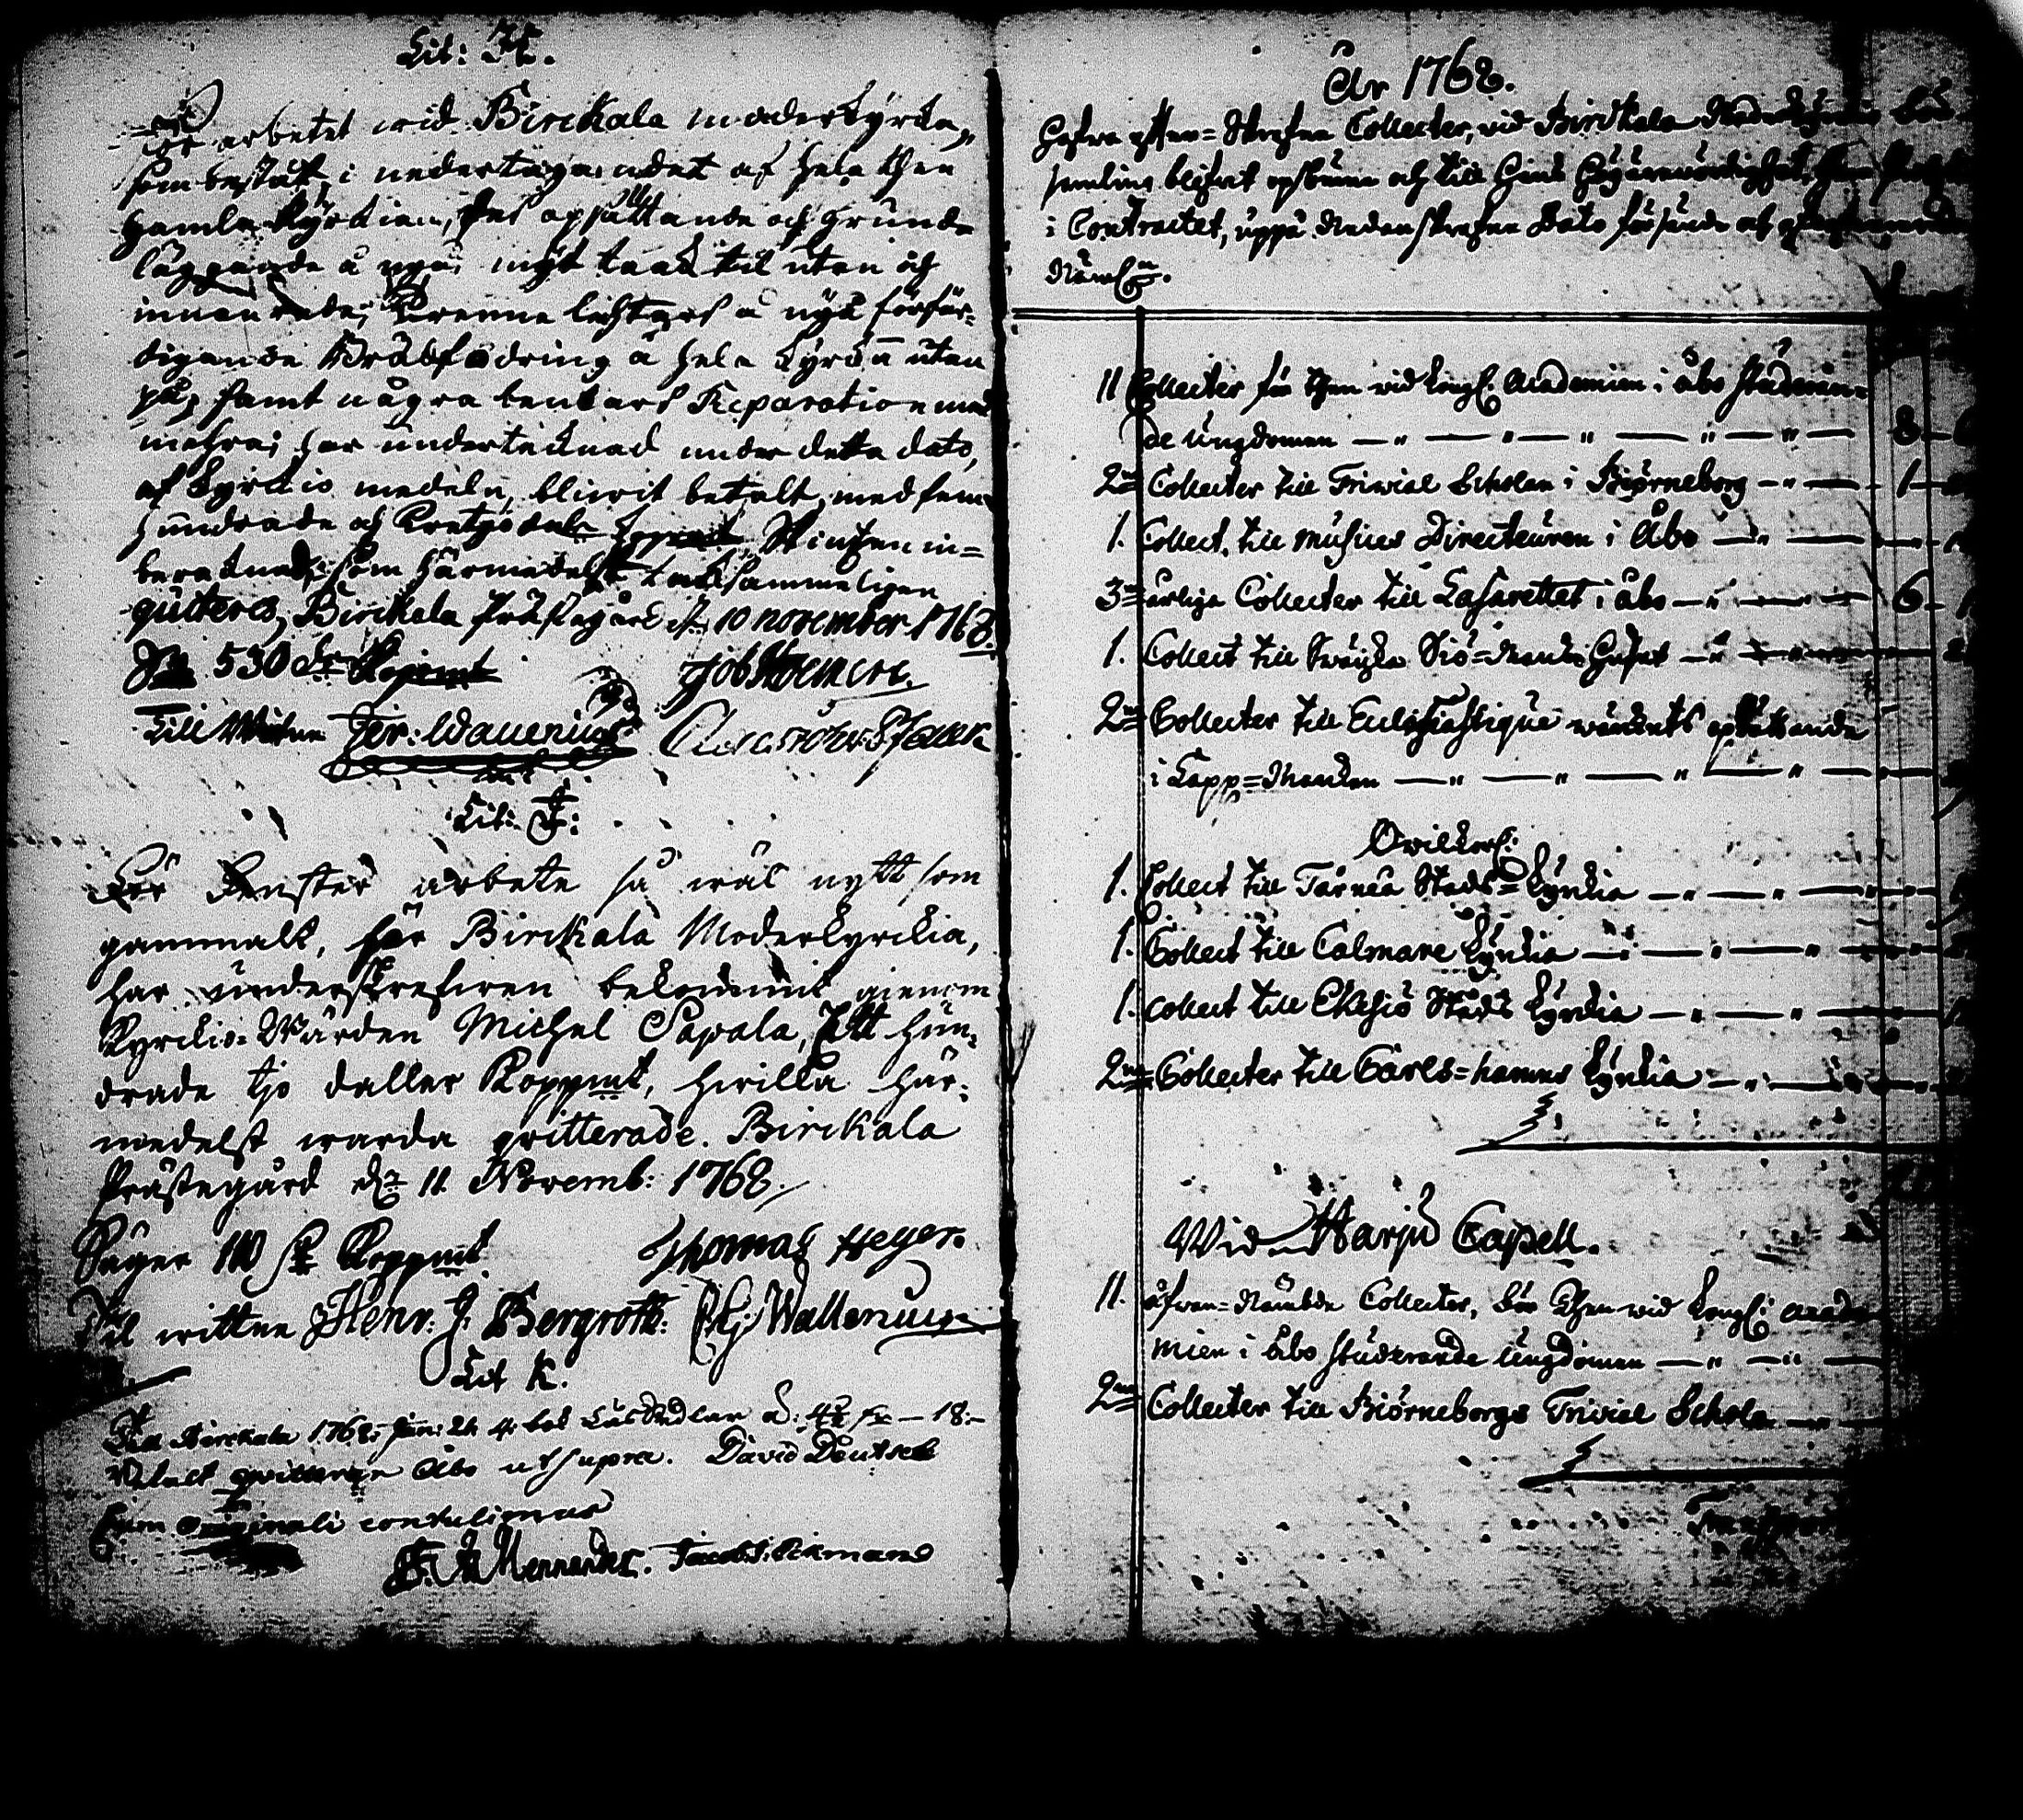 Lit: H.
För arbetet wid Birckala moderkyrka,
som bestått i nedertagandet af hela then
gamla Kyrkian, thes opsättande och grund-
läggande å nyo, nytt taak til utan och
innan rede; Trenne lychtars å nyo förfär-
digande Brädfodring å hela kyrkan utan
på, samt några bänkars Reparation med
mehra; har undertecknad under detta dato,
af Kyrckio medeln, bliwit betalt med fem
hundrade och Trettijo daler Kopmt. Winsten in-
beräknad; som härmedelst tacksammeligen
quiteres, Birckala Prästegård d. 10 november 1768.
530 dr Kopmt
Till Witne Jer: Wallenius
Lit: J:
För Fenster arbete så wäl nytt som
gammalt, för Birckala Moderkyrckia,
har underskrefwen bekommit gienom
Kyrckio-Wärden Michel Sapala, Ett hun-
drade tjo daller Koppmt, hwilka här-
medelst warda qvitterade. Birckala
Prästegård d. 11. Novemb: 1768.
Säger 110 dr Koppmt. Thomas Heyer.
Til wittne Henr: J. Bergroth. Wallenius
Lit K.
Birckala 1768: Jan: 21 4
qvitterar Åbo ut supra. David Deutsch
Cum originali contulimus
Mennander.
År 1768.
Hafwa efter-skrefne Collecter, wid Birckala Moderkyrkio
samling blifwit opburne och till
i Contractet, uppå nedanskrefne Dato försände
Näml.
11 Collecter för then wid Kongl. Academien i Åbo studeran-
de Ungdomen 8
2ne Collecter till Trivial Scholan i Biörneborg 1
1. Collect. till Musices Directeuren i Åbo
3ne årlige Collecter till Lasarettet i Åbo 6
1. Collect till Swenska Siö-
2ne Collecter till Ecclesiastique wärckets opsättande
i Lapp-Marken
Owilkorl.
1. Collect till Torneå Stads-Kyrckia
1. Collect till Calmare Kyrckia
1. Collect till Eksjö Stads Kyrckia
2ne Collecter till Carls-hamns Kyrckia
Wid Harju Capell.
11. äfwan-nämbde Collecter, för Then wid Kongl. Acade
mien i Åbo studerande Ungdomen
2ne Collecter till Biörneborgs Trivial Schola